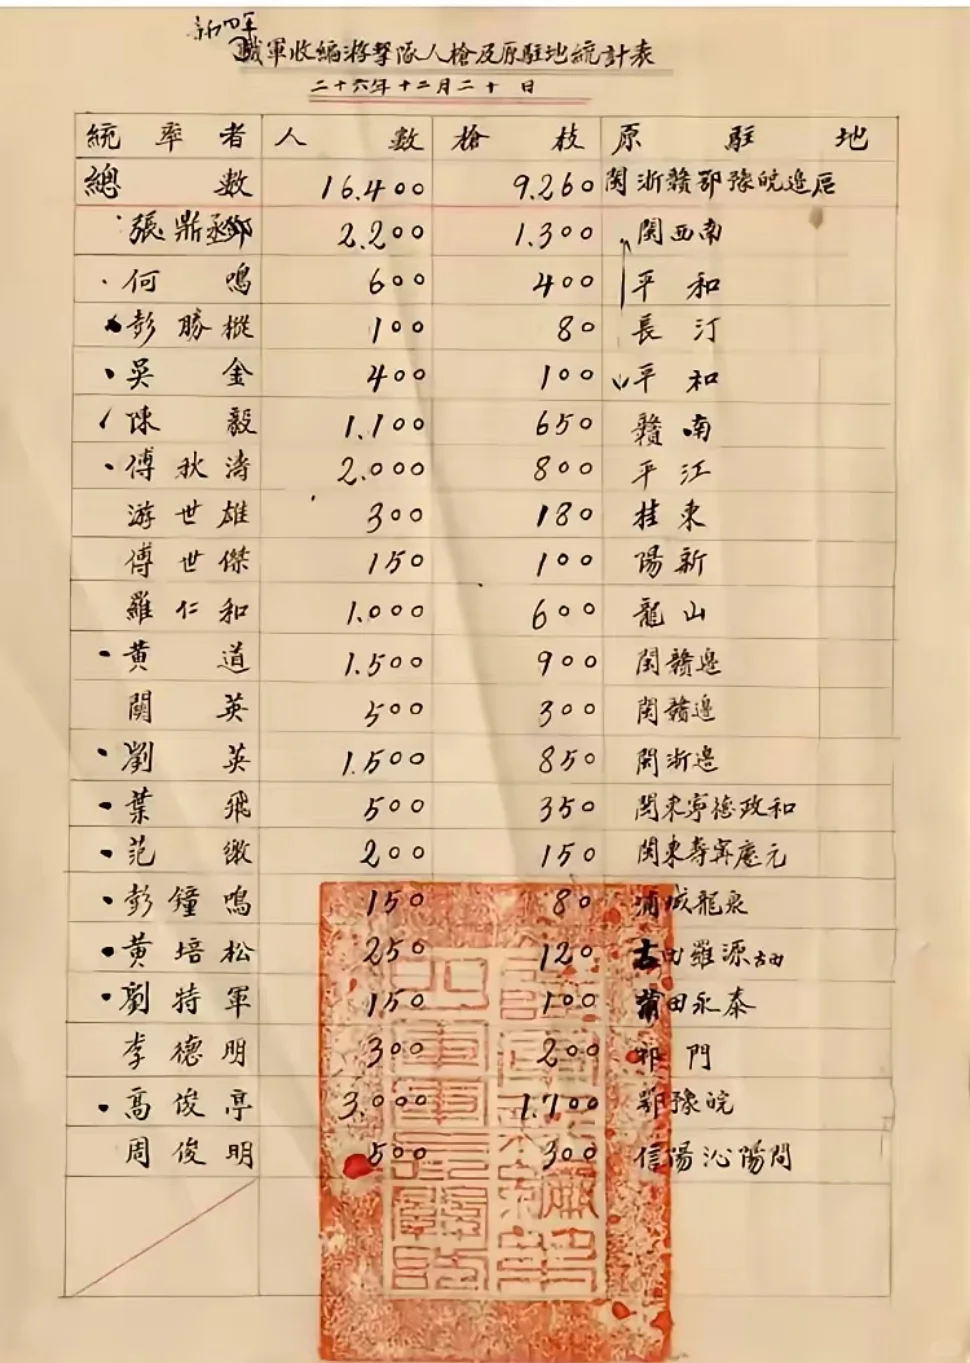 新四軍
職軍收編游擊隊人槍及原駐地統計表
二十六年十二月二十日
統率者 人數 槍枝 原駐地
總數 16.400 9.260 閩浙贛鄂豫皖邊區
張鼎丞 2.200 1.300 閩西南
何鳴 600 400 平和
彭勝樅 100 80 長汀
吳金 400 100 平和
陳毅 1.100 650 贛南
傅秋濤 2.000 800 平江
游世雄 300 180 桂東
傅世傑 150 100 陽新
羅仁和 1.000 600 龍山
黃道 1.500 900 閩贛邊
關英 500 300 閩贛邊
劉英 1.500 850 閩浙邊
葉飛 500 350 閩東寧德政和
范 200 150 閩東壽寧慶元
彭鐘鳴 150 80 浦城龍泉
黃培松 250 120 古田羅源古田
劉特軍 150 100 莆田永泰
李德明 300 200 祁門
高俊亭 3.000 1.700 鄂豫皖
周俊明 500 300 信陽沁陽間